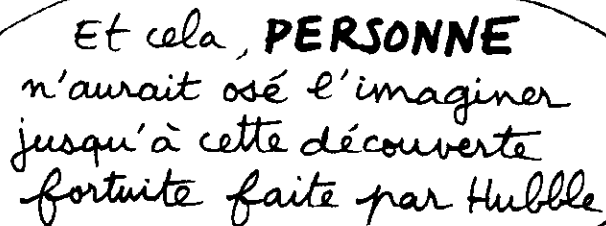 Et cela, PERSONNE
n'aurait osé l'imaginer
jusqu'à cette découverte
fortuite faite par Hubble